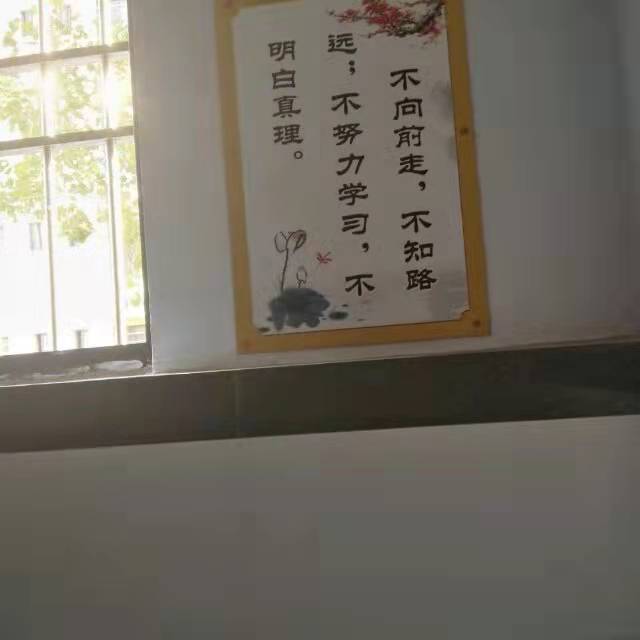 不向前走，不知路
远；不努力学习，不
明白真理。